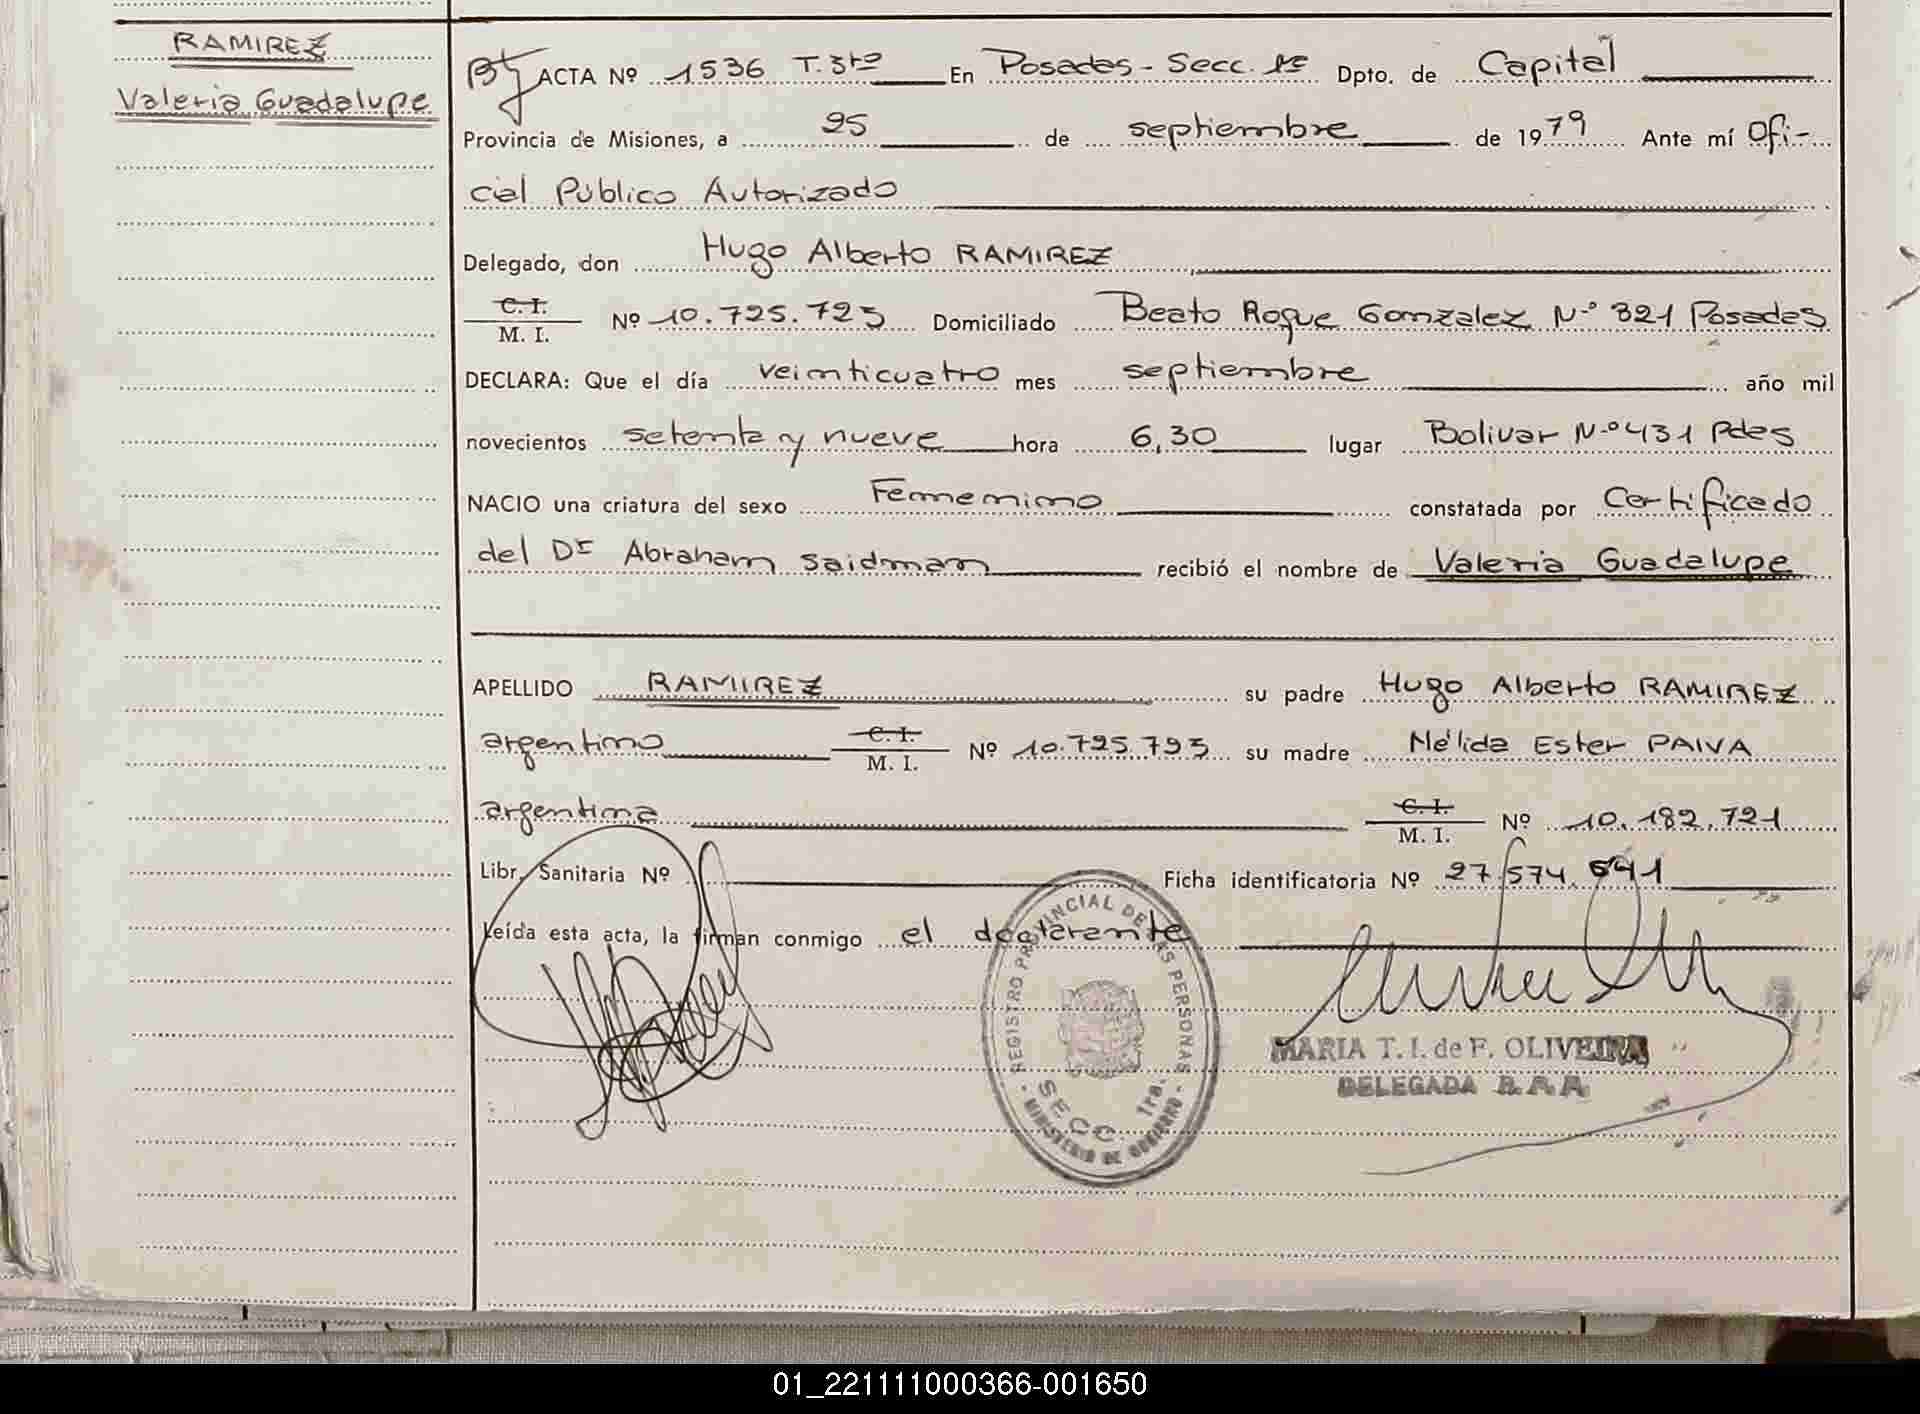 RAMIREZ
Valeria Guadalupe
ACTA Nº 1536 T. 3ro En Posadas - Secc. 1ª Dpto. de Capital
Provincia de Misiones, a 25 de septiembre de 1979 Ante mí Ofi-
cial Público Autorizado
Delegado, don Hugo Alberto RAMIREZ
C. I.
M. I. Nº 10.725.723 Domiciliado Beato Roque Gonzalez Nº 321 Posadas
DECLARA: Que el día veinticuatro mes septiembre año mil
novecientos setenta y nueve hora 6,30 lugar Bolivar Nº 431 Pdas
NACIO una criatura del sexo Femenino constatada por Certificado
del Dr Abraham Saidman recibió el nombre de Valeria Guadalupe
APELLIDO RAMIREZ su padre Hugo Alberto RAMIREZ
argentino C. I.
M. I. Nº 10.725.723 su madre Nélida Ester PAIVA
argentina C. I.
M. I. Nº 10.182.721
Libr. Sanitaria Nº Ficha identificatoria Nº 27.574.541
Leída esta acta, la firman conmigo el declarante
REGISTRO PROVINCIAL DE LAS PERSONAS
SECC. 1ra.
MINISTERIO DE GOBIERNO
MARIA T. I. de F. OLIVEIRA
DELEGADA
01_221111000366-001650